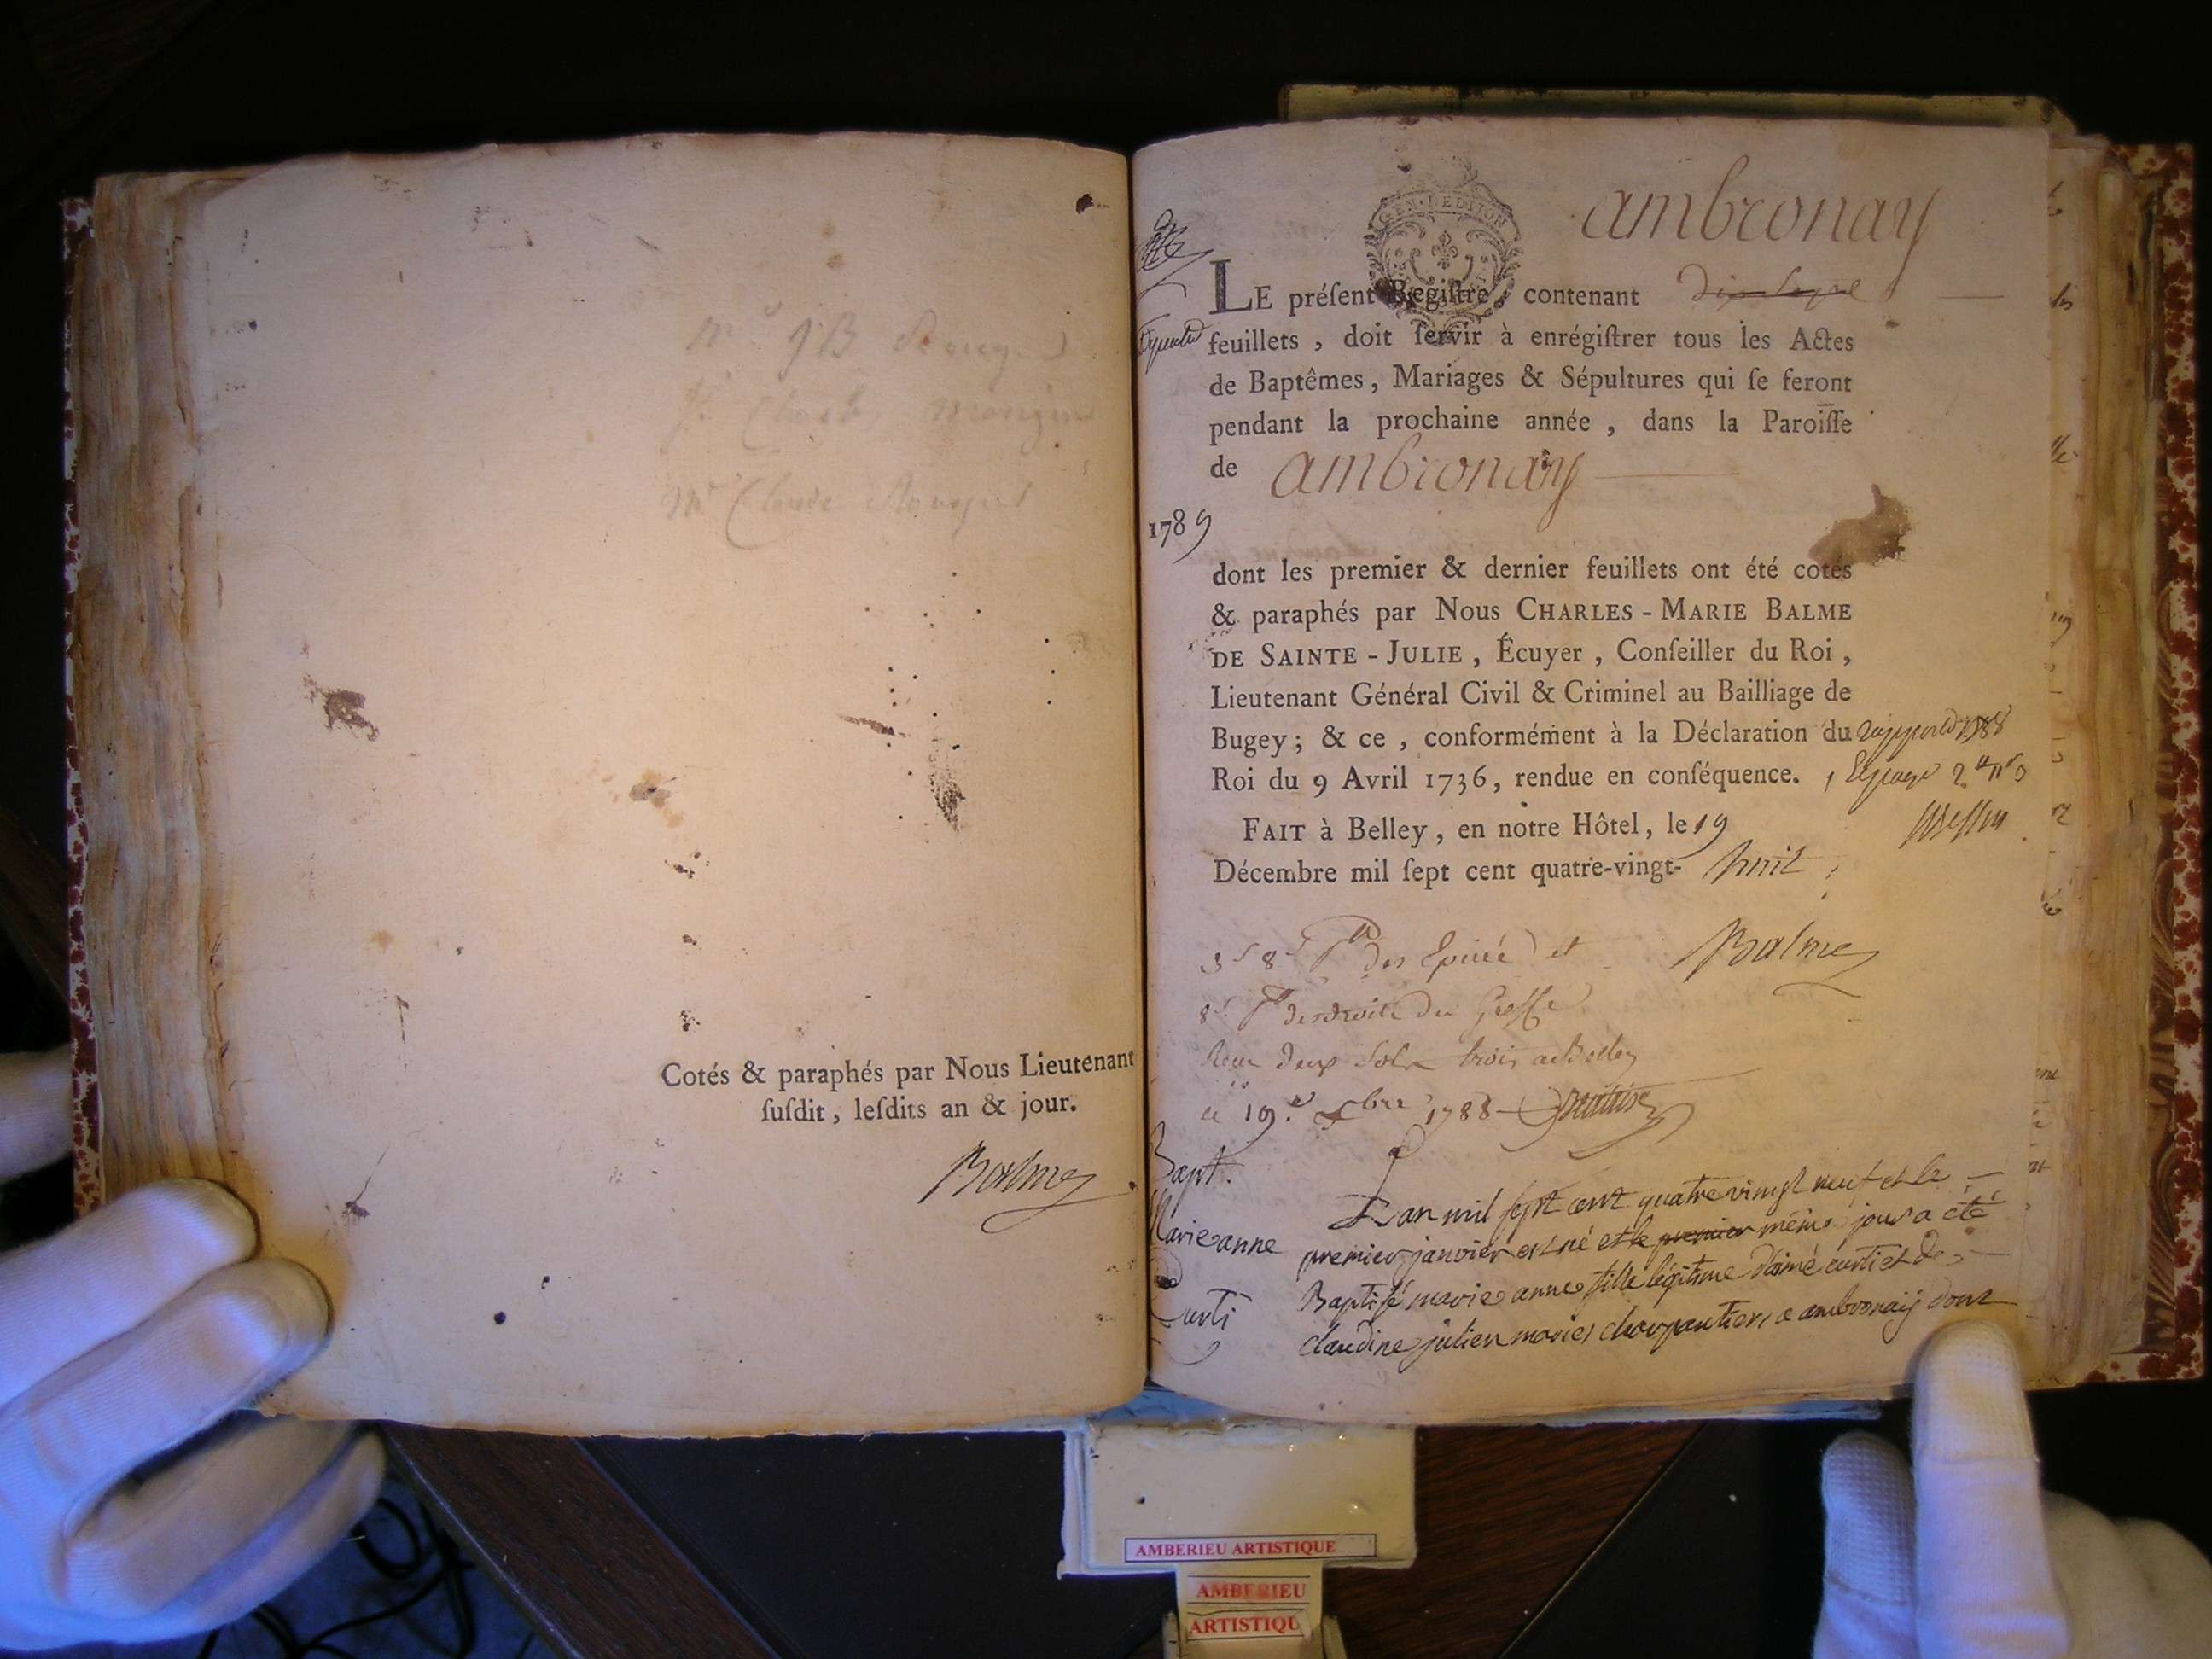 Cotés & paraphés par Nous Lieutenant
ſuſdit, leſdits an & jour.
Balme
GEN. DE DIJON
ambronay
LE préſent Regiſtre, contenant
feuillets, doit ſervir à enrégiſtrer tous les Actes
de Baptêmes, Mariages & Sépultures qui ſe feront
pendant la prochaine année, dans la Paroiſſe
de ambronay
1789
dont les premier & dernier feuillets ont été cotés
& paraphés par Nous CHARLES-MARIE BALME
DE SAINTE-JULIE, Écuyer, Conſeiller du Roi,
Lieutenant Général Civil & Criminel au Bailliage de
Bugey; & ce, conformément à la Déclaration du
Roi du 9 Avril 1736, rendue en conſéquence.
FAIT à Belley, en notre Hôtel, le 19
Décembre mil ſept cent quatre-vingt-huit
Balme
des Epices et
8 s. des droits du Greffe
deux sols trois a Belley
le 19e Xbre 1788
Bapt.
Marie anne
Curti
L'an mil sept cent quatre vingt neuf et le
premier janvier est né et le premier même jour a été
Baptisé marie anne fille légitime d'aimé curti et de
claudine julien mariés charpantier, a ambronaÿ dont
AMBERIEU ARTISTIQUE
AMBERIEU
ARTISTIQU